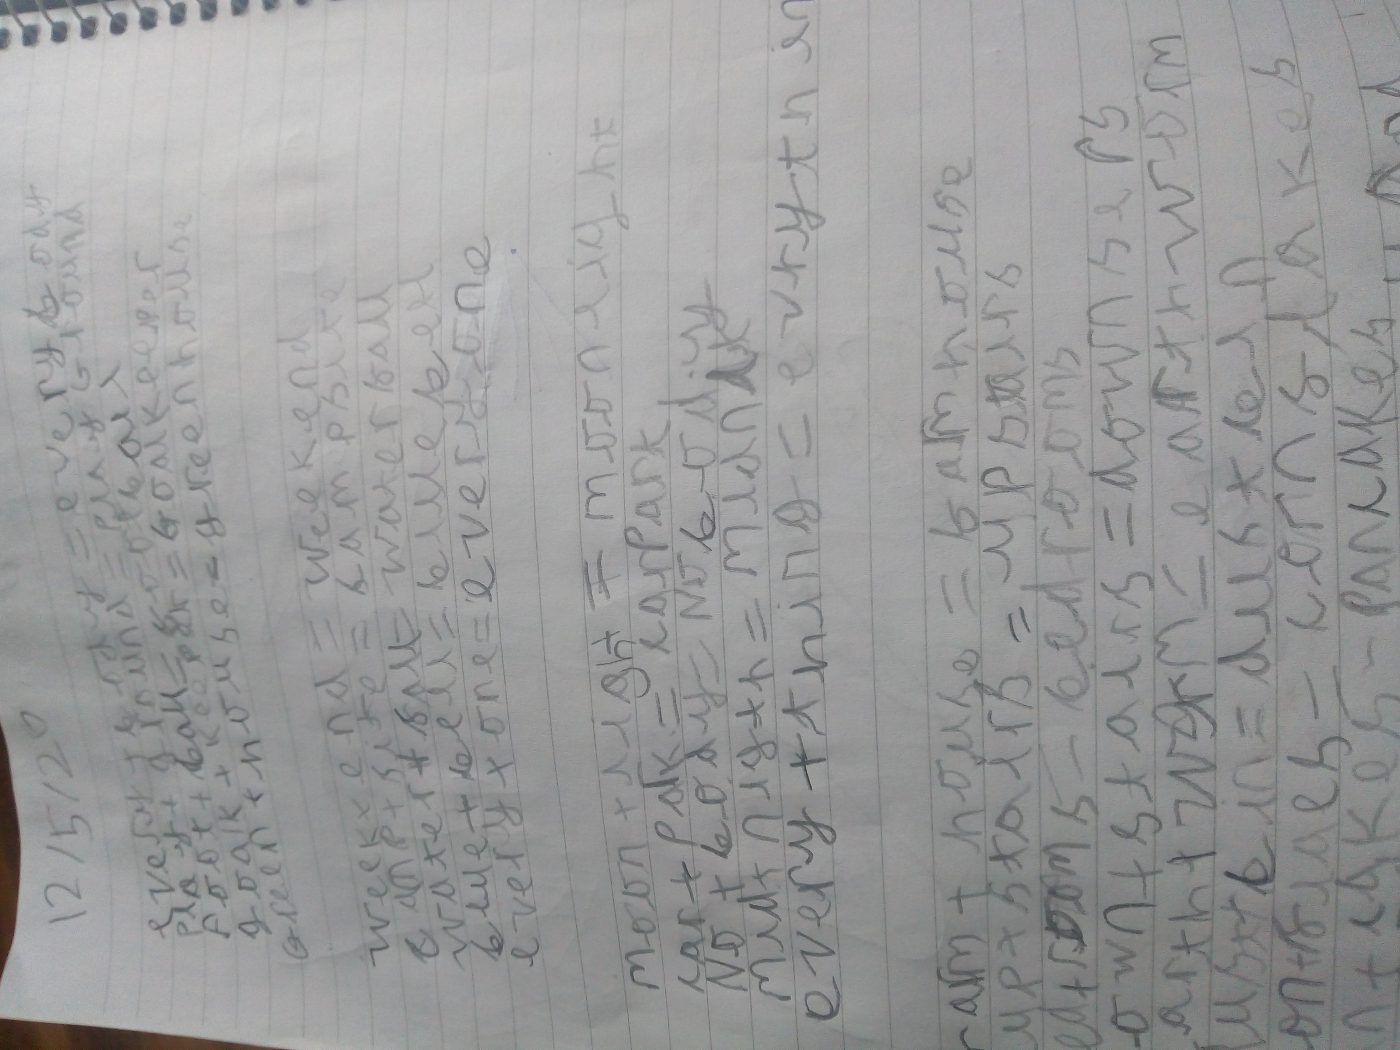 12/5/20
every + body = everybody
play + ground = play Ground
foot + ball = football
goalk + keeper = Goalkeeper
Green + house = greenhouse
week + end = weekend
camp + site = campsite
water + fall = waterfall
blue + bell = bluebell
every + one = everyone
moon + light = moonlight
car + park = carpark
No + body = Nobody
mid + night = midnight
every + thing = evrythin
arm + house = farmhouse
up + stairs = upstairs
ed + rooms - bedrooms
own + stairs = downseps
arth + worm = earthworm
ust + bin = dustbin